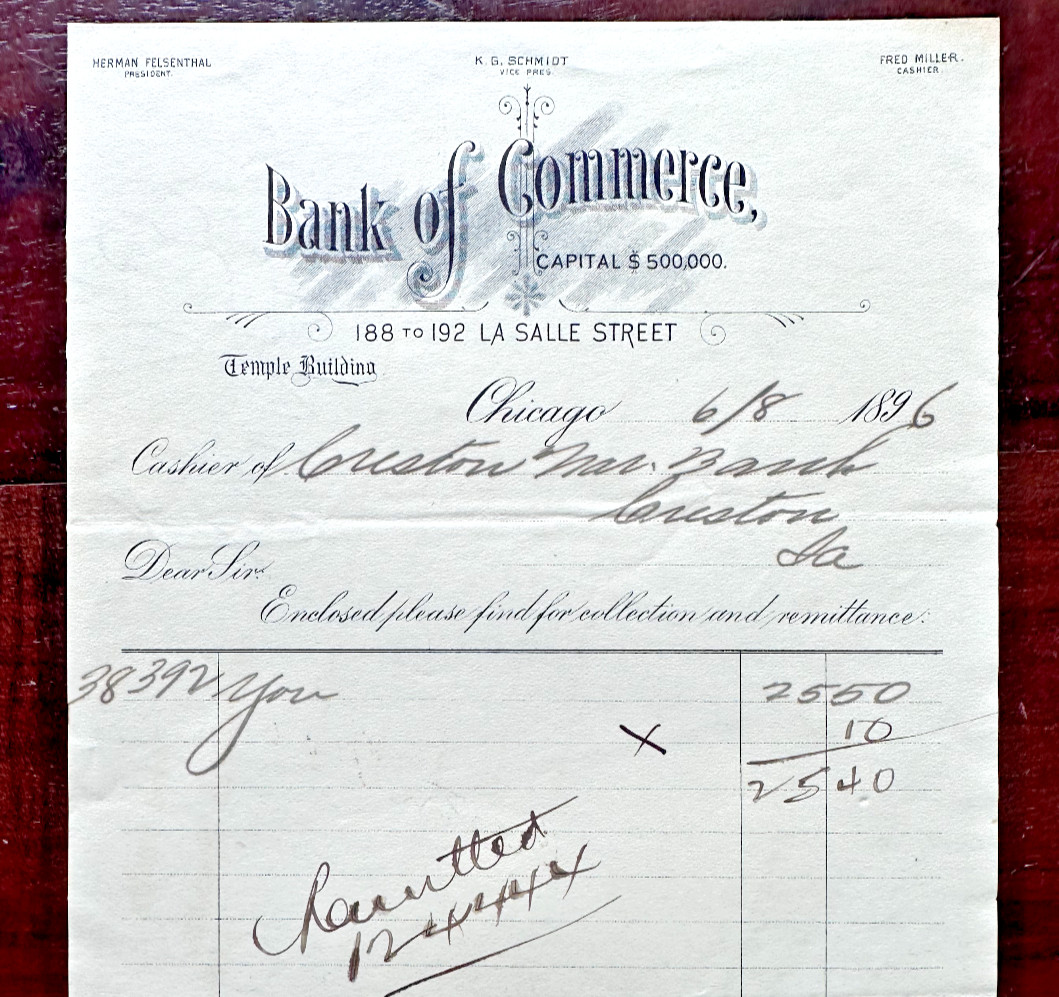 HERMAN FELSENTHAL
PRESIDENT.
K. G. SCHMIDT
VICE PRES.
FRED MILLER.
CASHIER.
Bank of Commerce,
CAPITAL $500,000.
188 TO 192 LA SALLE STREET
Temple Building
Chicago 6/8 1896
Cashier of Creston Nat. Bank
Creston
Ia
Dear Sir:
Enclosed please find for collection and remittance:
38392 You 2550
X 10
2540
Remitted